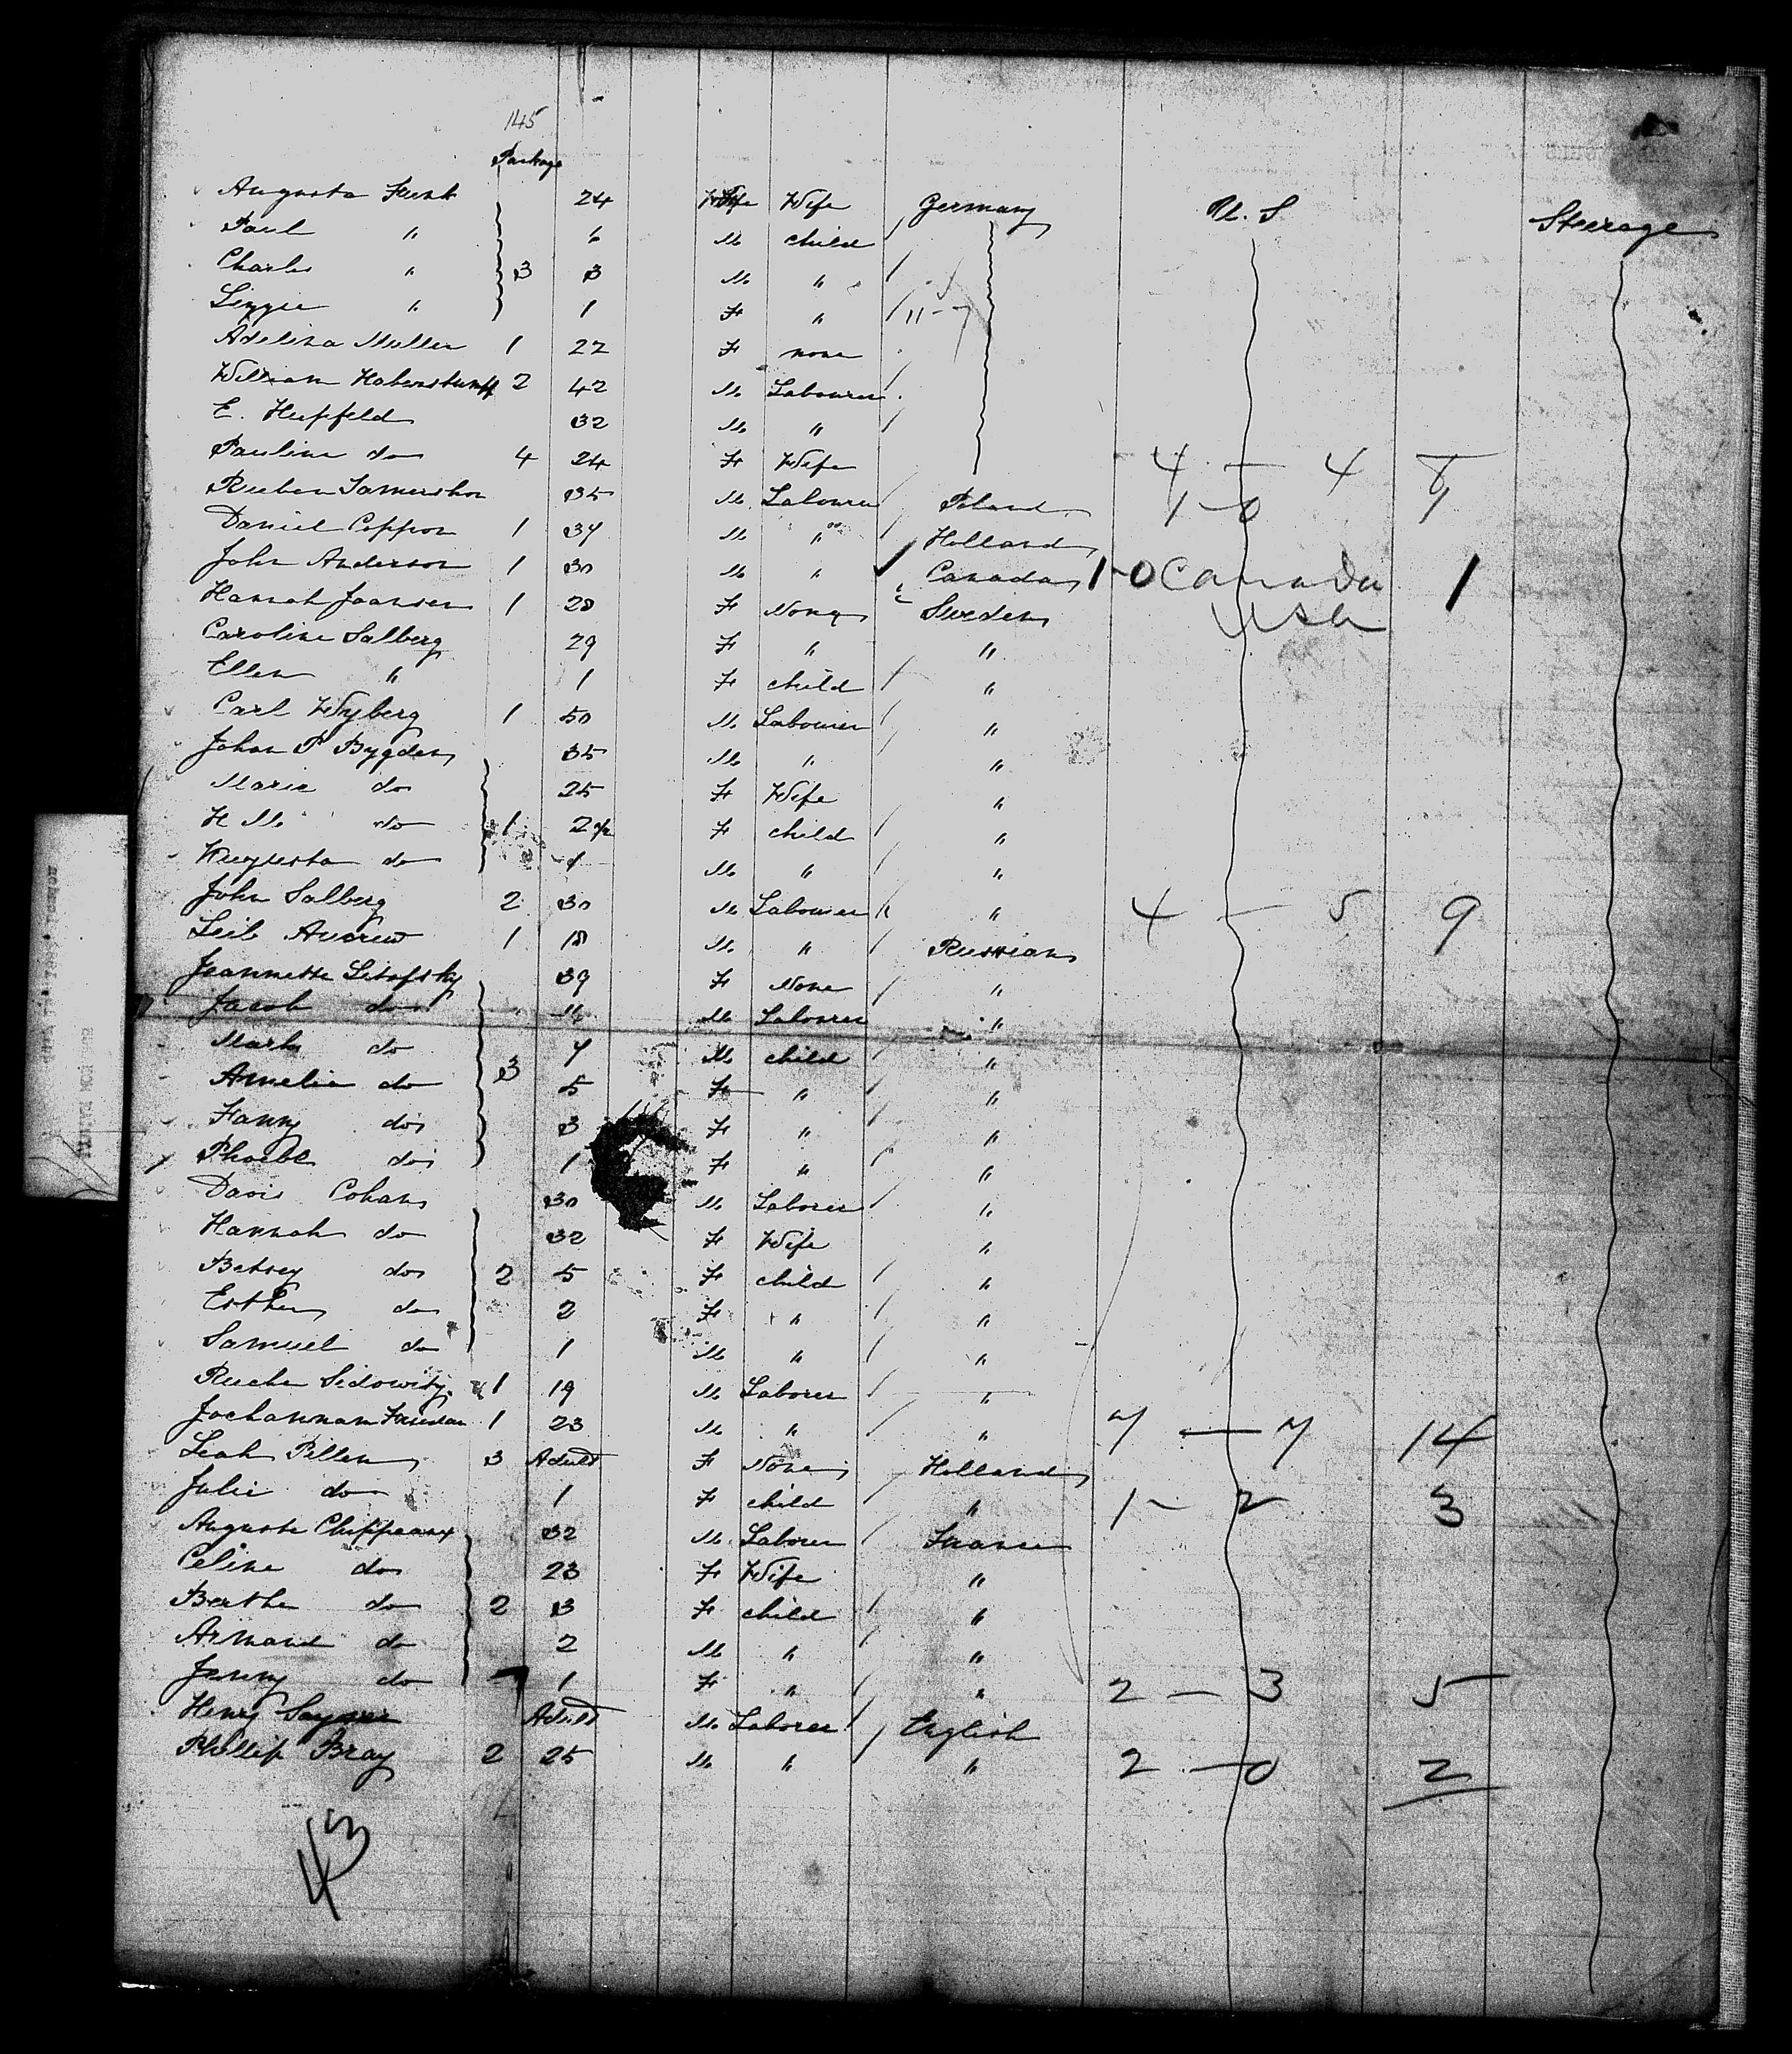 145
Package
Augusta Funk 24 Wife Wife Germany U. S Steerage
Paul " 6 M child /
Charles " 3 3 M " /
Lizzie " 1 F " / 11 - 7
Adelina Muller 1 22 F none
William 2 42 M Labourer /
E. Hupfeld 32 M " /
Pauline do 4 24 F Wife 4 - 4 8
Reuben 35 M Labourer / Poland 1 - 0 1
Daniel Coppon 1 34 M " / Holland
John Anderson 1 30 M " ✓ Canada 1-0 Canada 1
Hannah Jaansen 1 28 F None Sweden USA
Caroline Salberg 29 F " "
Ellen " 1 F child / "
Carl Wyberg 1 50 M Labourer / "
Johan P Bygden 35 M " / "
Marie do 25 F Wife "
H M do 1 2 F child / "
Augusta do 1 M " / "
John Salberg 2 30 M Labourer " 4 - 5 9
Leib Andrew 1 18 M " / Russian
Jeannette Litofsky 39 F None / "
Jacob do M Labourer "
Mark do 3 7 M child / "
Amelia do 5 F " / "
Fanny do 3 F " / "
Phoebe do 1 F " / "
Davis Cohan 30 M Laborer / "
Hannah do 32 F Wife "
Betsey do 2 5 F child / "
Esther do 2 F " / "
Samuel do 1 M " / "
1 19 M Laborer / "
1 23 M " / " 7 - 7 14
Leah Pillen 3 Adult F None Holland
Julie do 1 F child / " 1 - 2 3
Auguste Chippeaux 32 M Laborer / France
Celine do 23 F Wife "
Berthe do 2 3 F child / "
Armand do 2 M " / "
Jenny do 1 F " / " 2 - 3 5
Henry Adult M Laborer / English
Phillip Bray 2 25 M " / " 2 - 0 2
43